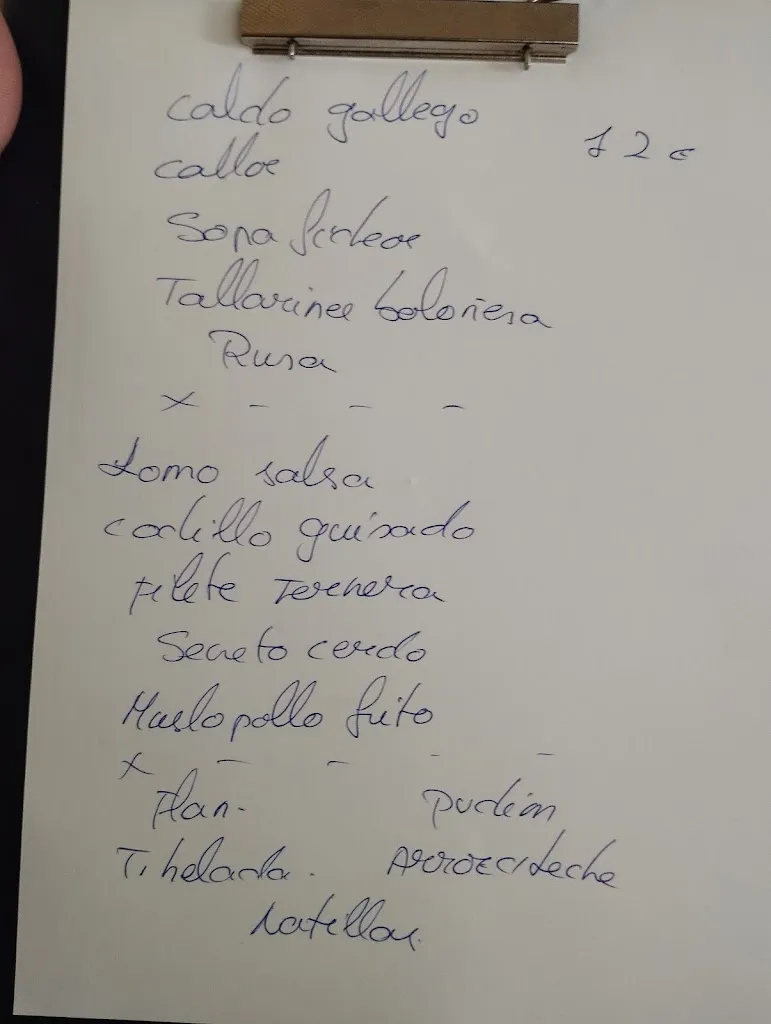 Caldo gallego
12 €
callos
Sopa fideos
Tallarines boloñesa
Rusa
x - - -
Lomo salsa
codillo guisado
Filete Ternera
Secreto cerdo
Muslo pollo frito
x - - - -
Flan. pudim
T. helada. Arroz c/ Leche
Natillas.